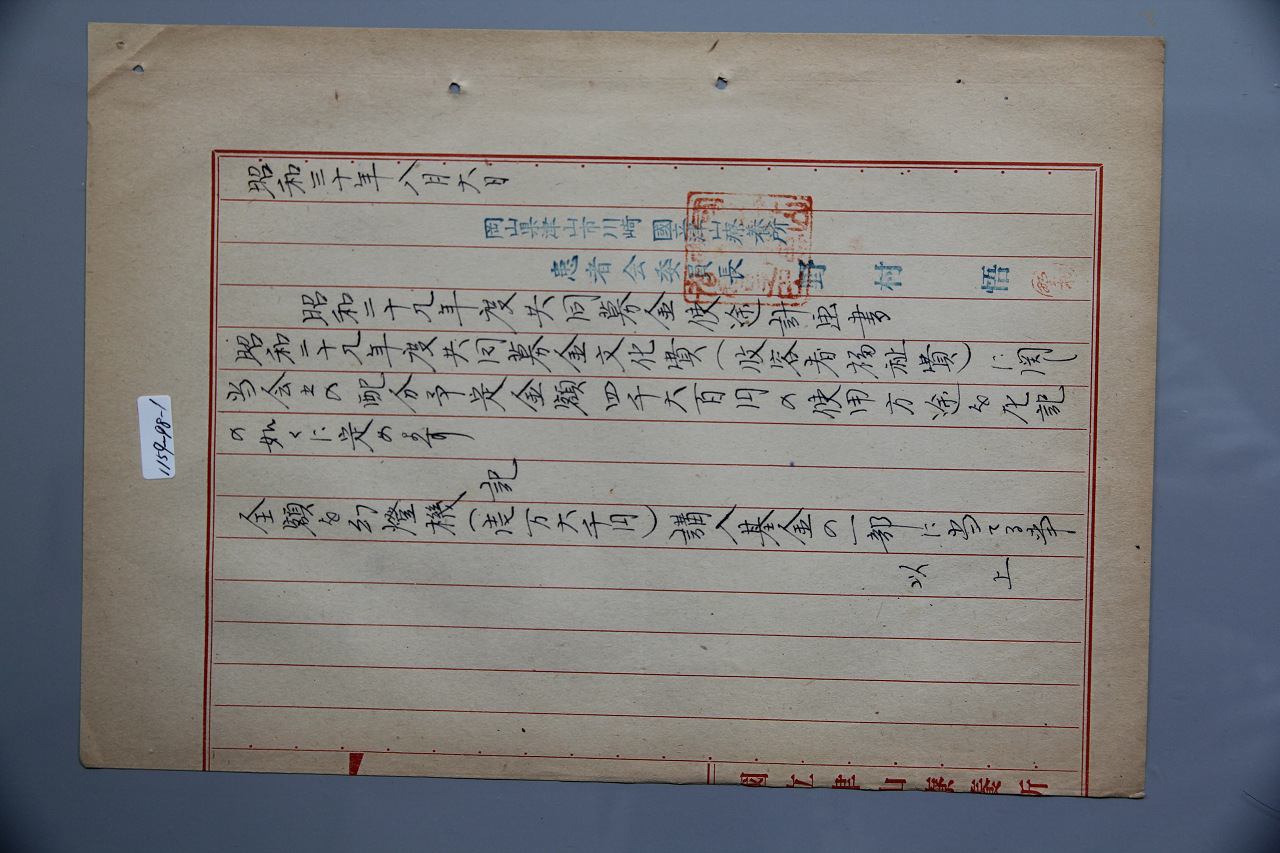 昭和三十年八月六日
岡山県津山市川崎 國立津山療養所
患者会委員長 野村悟
昭和二十九年度共同募金使途計画書
昭和二十九年度共同募金文化費(收容者福祉費)に関し
当会上の配分予定金額四千六百円の使用方途を左記
の如くに定めます
記
全額を幻燈機(壱万六千円)講入基金の一部に当てる事
以上
國立津山療養所
1154-98-1